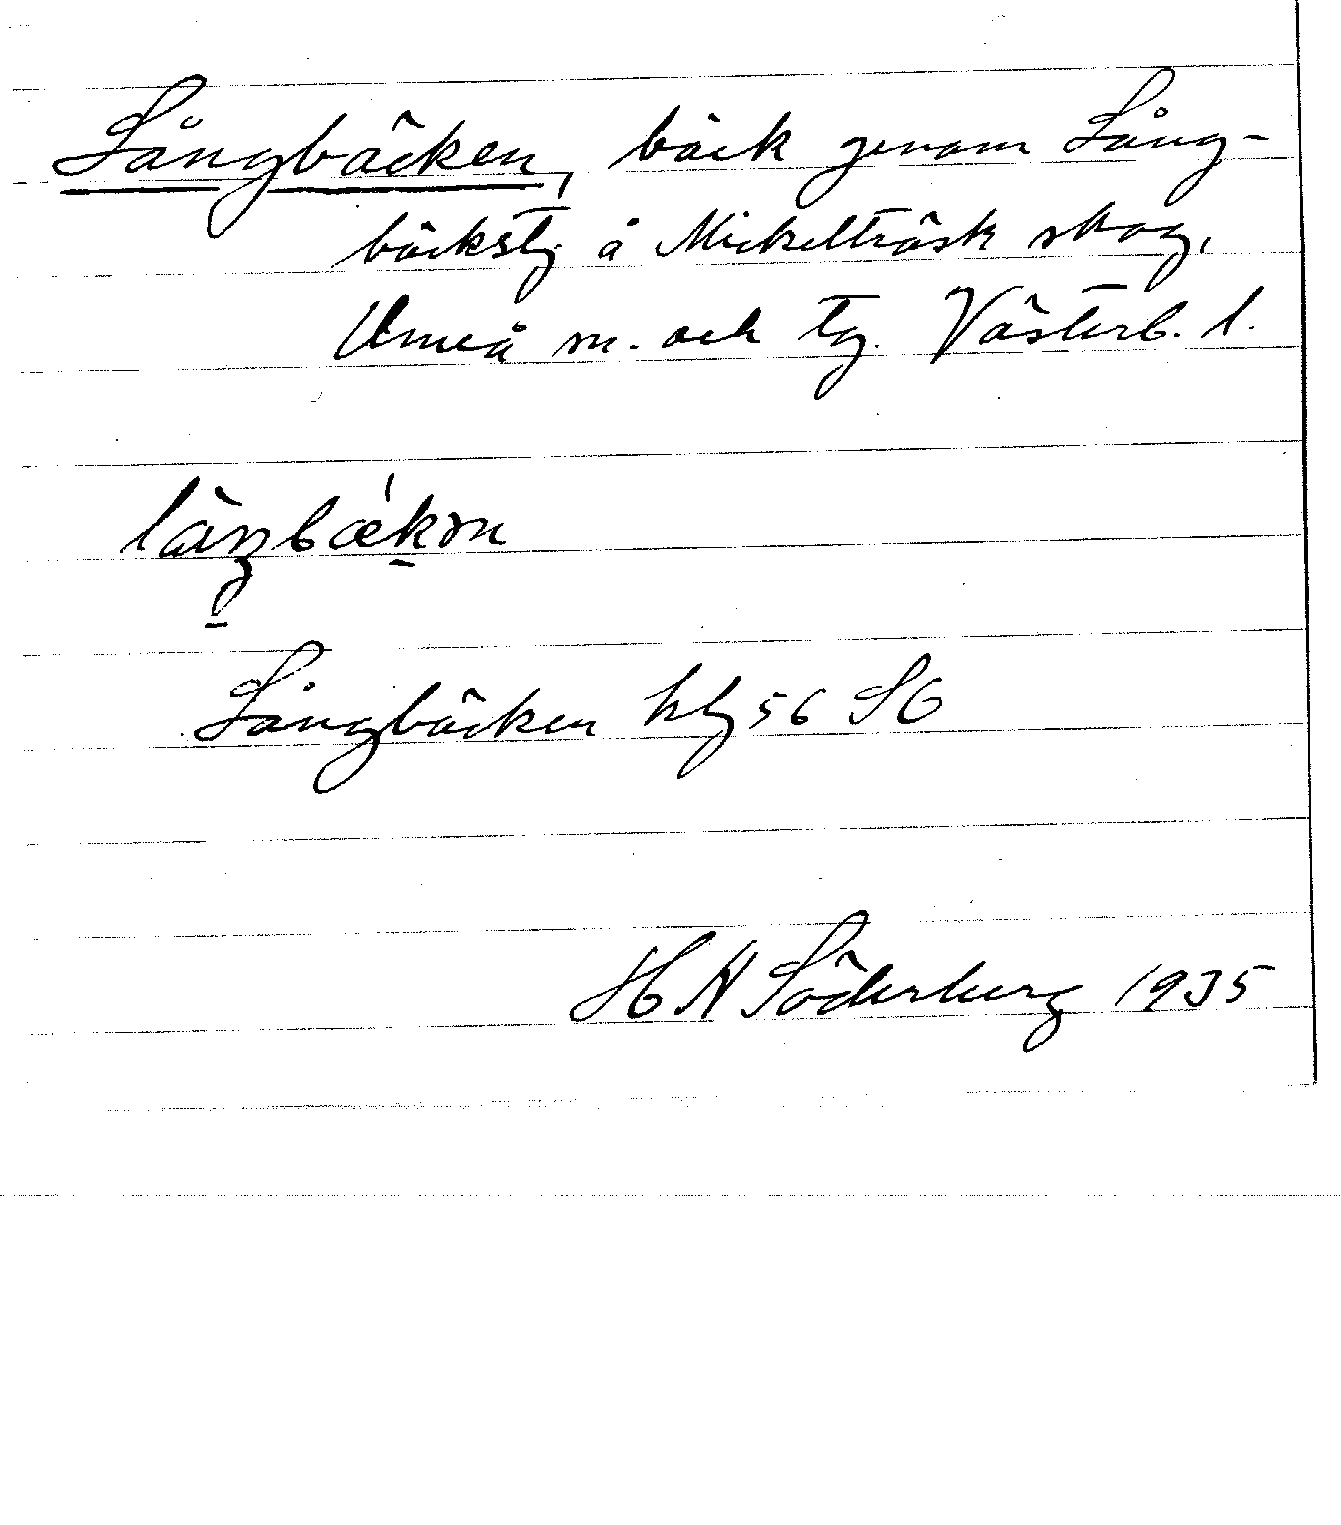 Långbäcken, bäck genom Lång-
bäckstj. å Mickelträsk skog,
Umeå sn. och tg. Västerb. l.
Långbäcken hbl 56 SG
H N Söderberg 1935